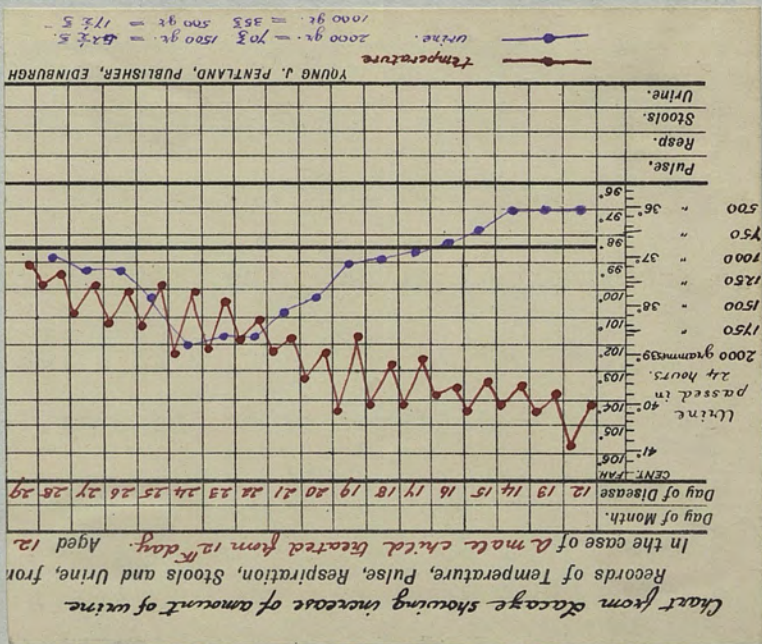 Chart from Lacaze showing increase of amount of urine
Records of Temperature, Pulse, Respiration, Stools and Urine, from
In the case of a male child treated from 12th day. Aged 12
Day of Month.
Day of Disease 12 13 14 15 16 17 18 19 20 21 22 23 24 25 26 27 28 29
CENT. FAH
41° 106°
105°
Urine 40° 104°
passed in
24 hours. 103°
2000 grammes 39° 102°
1750 " 101°
1500 " 38° 100°
1250 "
1000 " 37° 99°
750 " 98°
500 " 36° 97°
96°
Pulse.
Resp.
Stools.
Urine.
YOUNG J. PENTLAND, PUBLISHER, EDINBURGH
temperature
urine.
2000 gr. = 70℥ 1500 gr. = 52½ ℥.
1000 gr = 35℥ 500 gr = 17½ ℥